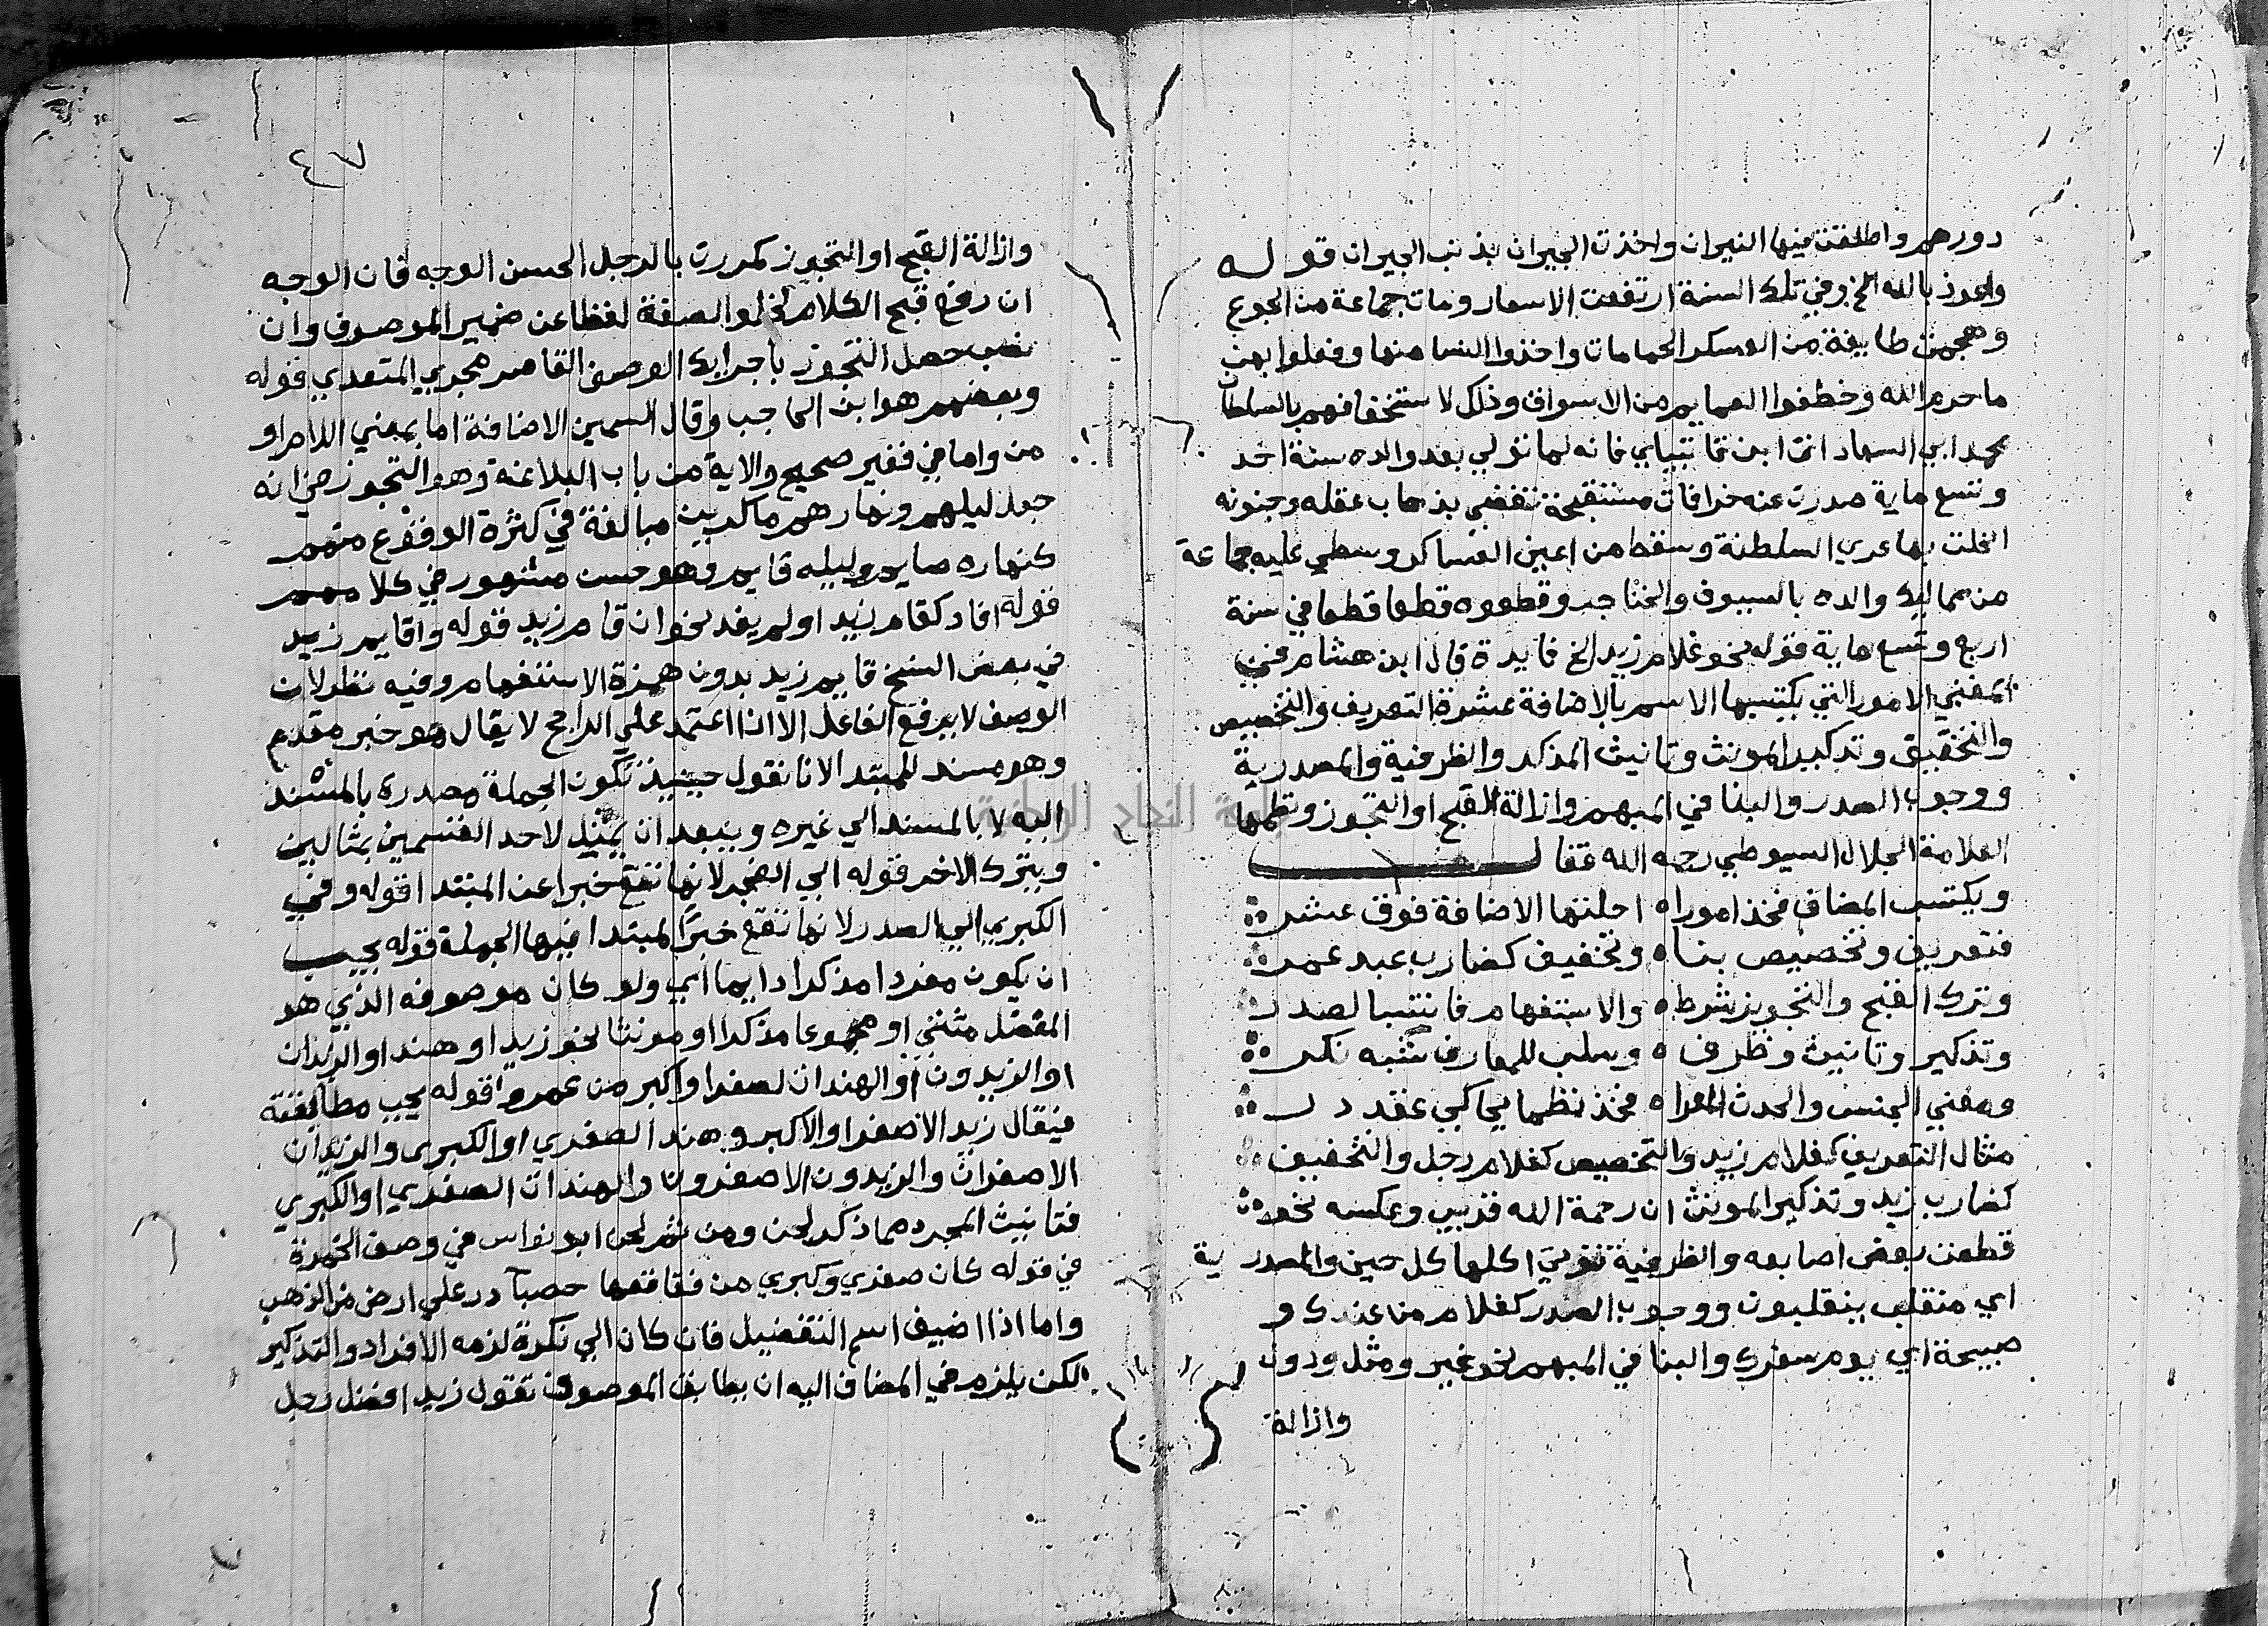 دورهم واطلقت فيها النيران واخذت الجيران بذنب الجيران قوله
واعوذ بالله الخ وفي تلك السنة ارتفعت الاسعار ومات جماعة من الجوع
وهجمت طايفة من العسكر الحمامات واخذوا النسا منها وفعلوا بهن
ما حرم الله وخطفوا العمايم من الاسواق وذلك لاستخفافهم بالسلطان
محمد ابي السعادات ابن قايتباي فانه لما تولي بعد والده سنة احد
وتسع ماية صدرت عنه خرافات مستقبحة تقضي بذهاب عقله وجنونه
انحلت بها عري السلطنة وسقط من اعين العساكر وسطي عليه جماعة
من مماليك والده بالسيوف والخناجر وقطعوه قطعا قطعا في سنة
اربع وتسع ماية قوله نحو غلام زيد الخ فايدة قال ابن هشام في
المغني الامور التي يكتسبها الاسم بالاضافة عشرة التعريف والتخصيص
والتخفيق وتذكير المونث وتانيث المذكر والظرفية والمصدرية
ووجوب الصدر والبنا في المبهم وازالة القبح او التجوز ونظمها
العلامة الجلال السيوطي رحمه الله فقال
ويكتسب المضاف فخذ امورا ه احلتها الاضافة فوق عشر
فتعريف وتخصيص بنا ه وتخفيف كضارب عبد عمر
وترك القبح والتجويز شرط ه والاستفهام فانتسبا لصدر
وتذكير وتانيث وظرف ه وسلب للمعارف شبه نكر
ومعني الجنس والحدث المعرا ه فخذ نظما يحاكي عقد در
مثال التعريف كغلام زيد والتخصيص كغلام رجل والتخفيف
كضارب زيد وتذكير المونث ان رحمة الله قريب وعكسه نحو
قطعت بعض اصابعه والظرفية تؤتي اكلها كل حين والمصدرية
اي منقلب ينقلبون ووجوب الصدر كغلام من عندك و
صبيحة اي يوم سفرك والبنا في المبهم نحو غير ومثل ودون
وازالة
٤٧
وازالة القبح او التجوز كمررت بالرجل الحسن الوجه فان الوجه
ان رفع قبح الكلام لخلو الصفة لفظا عن ضمير الموصوف وان
نصب حصل التجوز باجرايك الوصف القاصر مجري المتعدي قوله
وبعضهم هو ابن الحاجب وقال السمين الاضافة اما بمعني اللام او
من واما في فغير صحيح والاية من باب البلاغة وهو التجوز في انه
جعل ليلهم ونهارهم ماكرين مبالغة في كثرة الوقوع منهم
كنهاره صايم وليله قايم وهو حسن مشهور في كلامهم
قوله افاد كقام زيد او لم يفد نحو ان قام زيد قوله واقايم زيد
في بعض النسخ قايم زيد بدون همزة الاستفهام وفيه نظر لان
الوصف لا يرفع الفاعل الا اذا اعتمد علي الراجح لا يقال هو خبر مقدم
وهو مسند للمبتدا لانا نقول حينيذ تكون الجملة مصدرة بالمسند
اليه لا بالمسند الي غيره ويبعد ان يمثل لاحد القسمين بمثالين
ويترك الاخر قوله الي الصغري لانها تقع خبرا عن المبتدا قوله وفي
الكبري الي الصدر لانها تقع خبرا لمبتدا فيها الجملة قوله يجب
ان يكون مفردا مذكرا دايما اي ولو كان موصوفه الذي هو
المفضل مثني او مجموعا مذكرا او مونثا نحو زيد او هند او الزيدان
او الزيدون او الهندان اصغر او اكبر من عمرو قوله يجب مطابقته
فيقال زيد الاصغر او الاكبر وهند الصغري او الكبري والزيدان
الاصغران والزيدون الاصغرون والهندات الصغري او الكبري
فتانيث المجرد مما ذكر لحن ومن ثم لحن ابو نواس في وصف الخمرة
في قوله كان صغري وكبري من فقاقعها حصبآ در علي ارض من الذهب
واما اذا اضيف اسم التفضيل فان كان الي نكرة لزمه الافراد والتذكير
لكن يلزم في المضاف اليه ان يطابق الموصوف تقول زيد افضل رجل